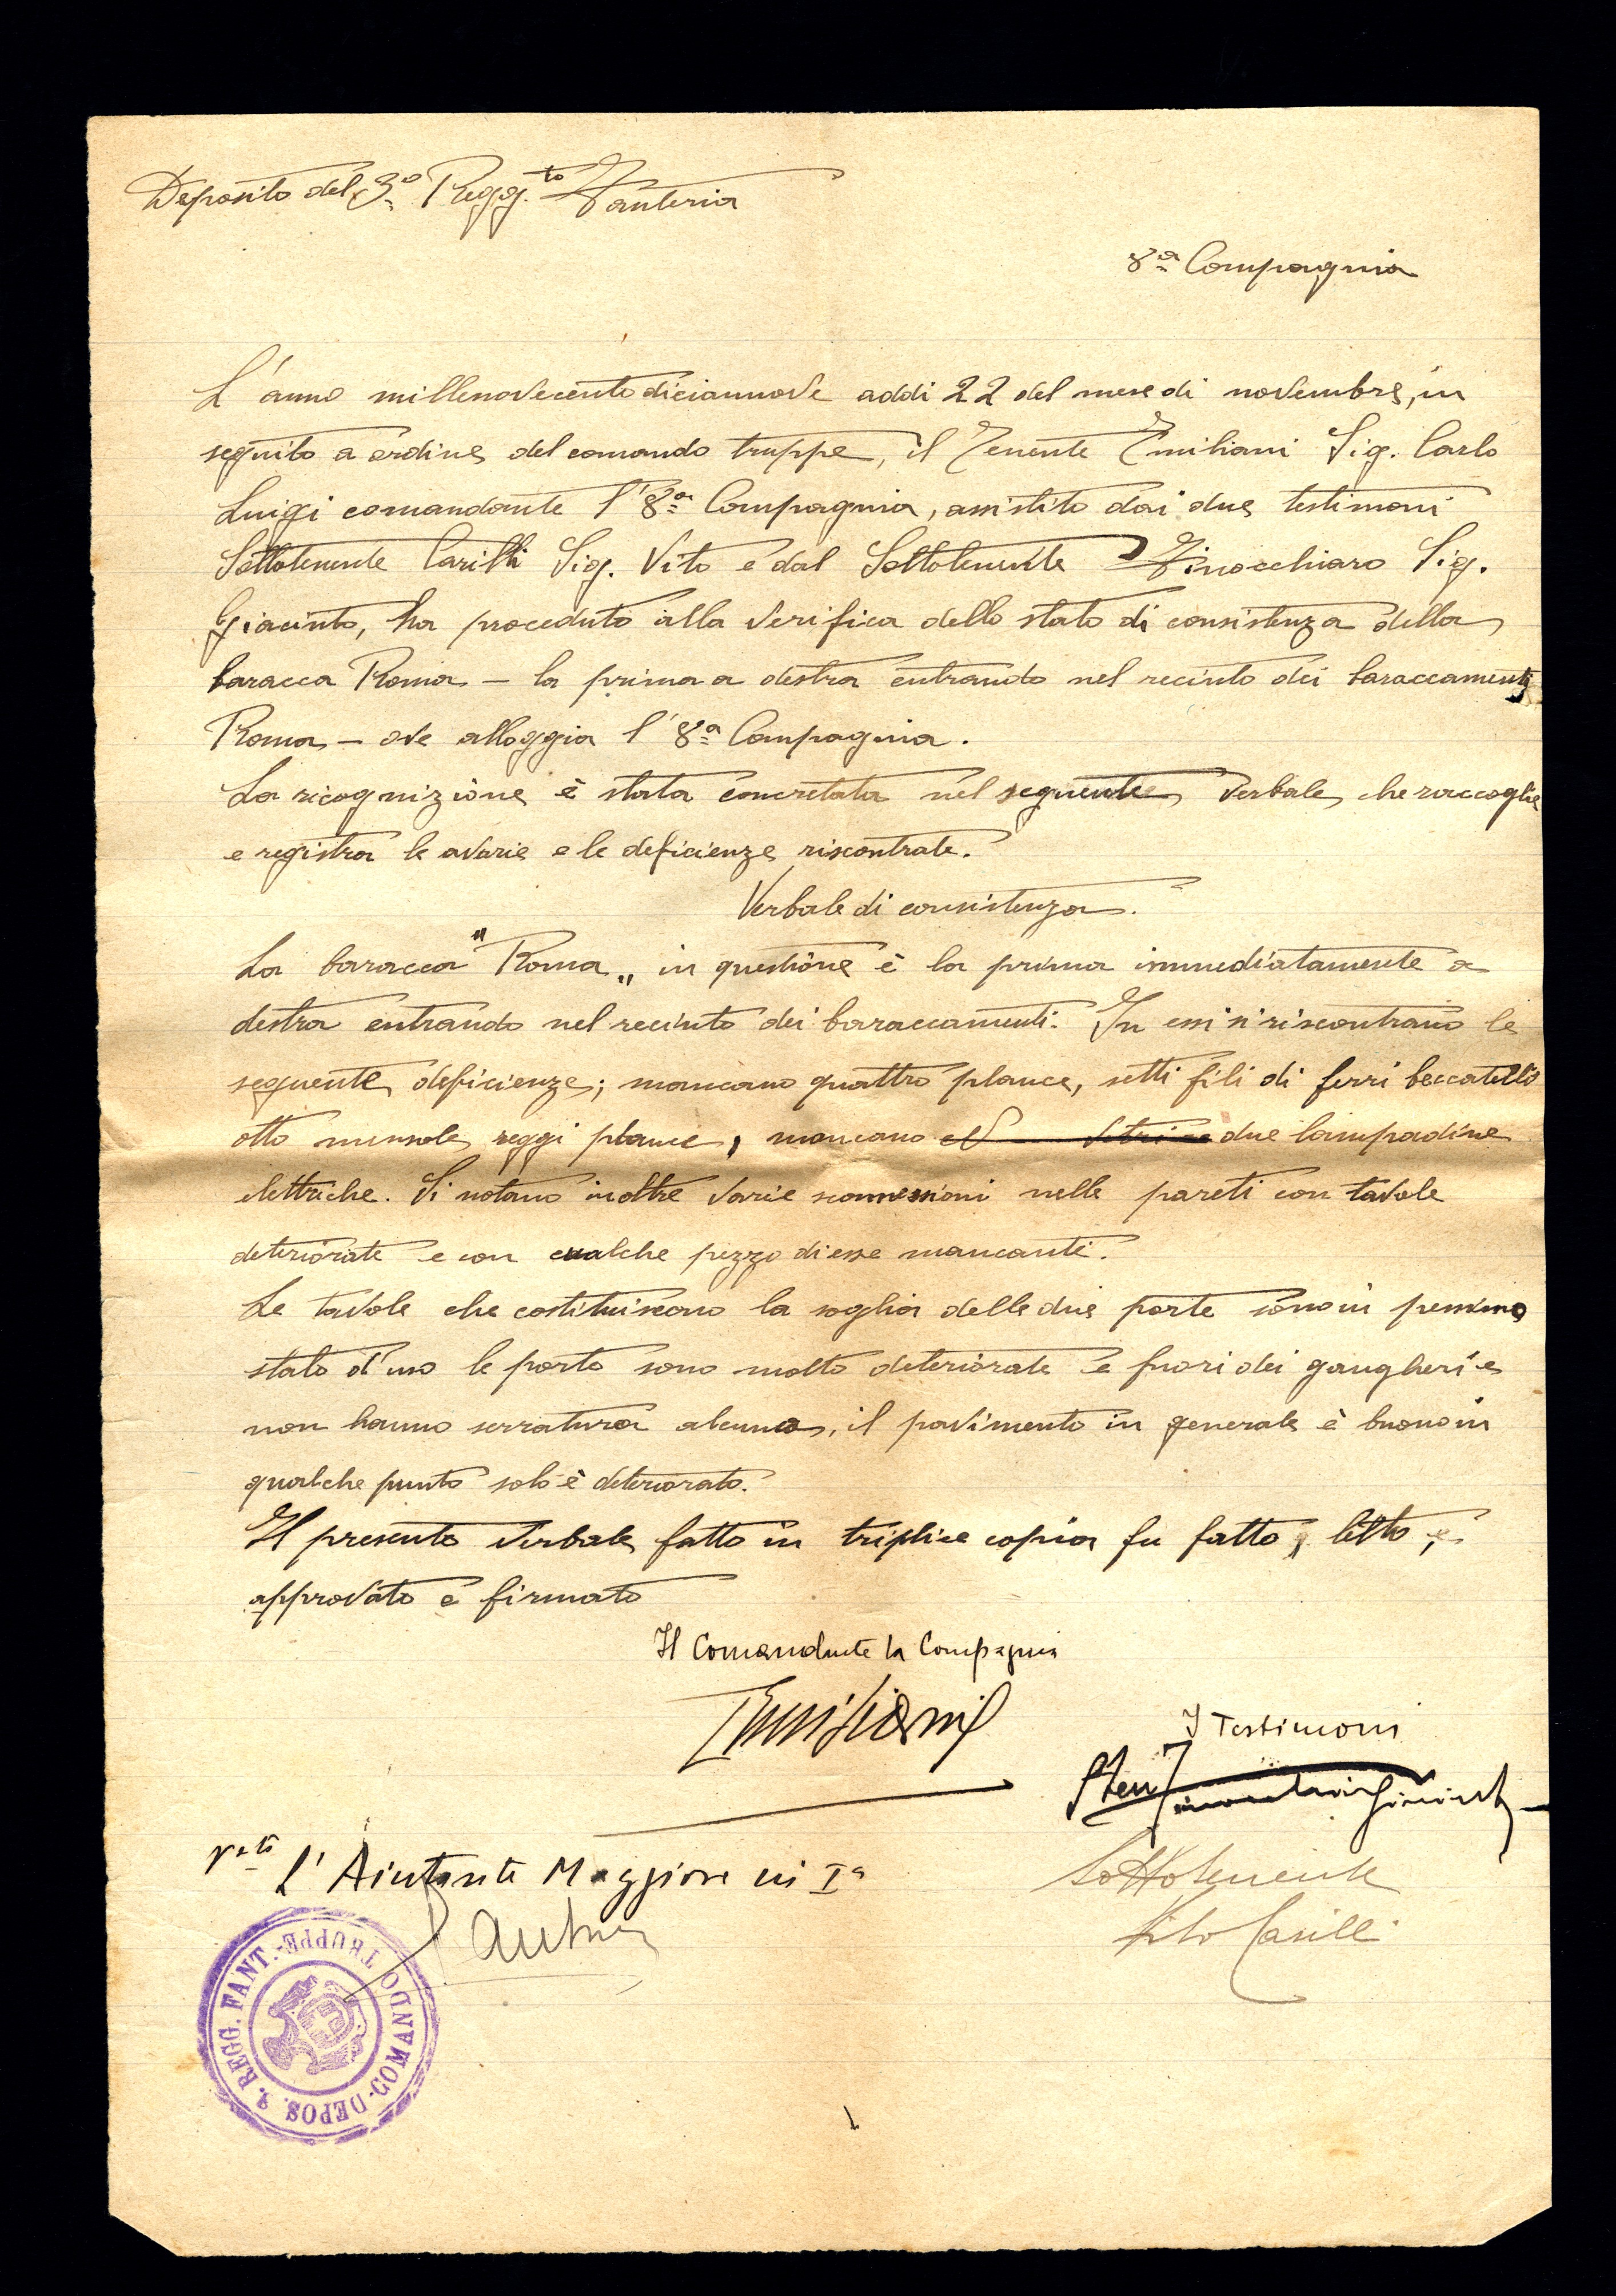 Deposito del 3º Regg.to Fanteria
8ª Compagnia
L'anno millenovecentodiciannove addi 22 del mese di novembre, in
seguito a ordine del comando truppe, il Tenente Emiliani Sig. Carlo
Luigi comandante l'8ª Compagnia, assistito dai due testimoni
Sottotenente Carilli Sig. Vito e dal Sottotenente Finocchiaro Sig.
Giacinto, ha proceduto alla verifica dello stato di consistenza della
baracca Roma – la prima a destra entrando nel recinto dei baraccamenti
Roma – ove alloggia l'8ª Compagnia.
La ricognizione è stata concretata nel seguente verbale che raccoglie
e registra le avarie e le deficienze riscontrate.
Verbale di consistenza.
La baracca "Roma" in questione è la prima immediatamente a
destra entrando nel recinto dei baraccamenti. In essi si riscontrano le
seguente deficienze; mancano quattro plance, setti fili di ferri beccatello
otto mensole reggi plance, mancano due lampadine
elettriche. Si notano inoltre varie sconnessioni nelle pareti con tavole
deteriorate e con qualche pezzo di esse mancanti.
Le tavole che costituiscono la soglia delle due porte sono in pessimo
stato d'uso le porte sono molto deteriorate e fuori dei gangheri e
non hanno serratura alcuna, il pavimento in generale è buono in
qualche punto solo è deteriorato.
Il presente verbale fatto in triplice copia fu fatto, letto, e
approvato e firmato
Il Comandante la Compagnia
Emiliani
I Testimoni
STen Finocchiaro Giacinto
Sottotenente
Vito Carilli
Vº to L'Aiutante Maggiore in Iª
COMANDO TRUPPE - DEPOS. 3. REGG. FANT.